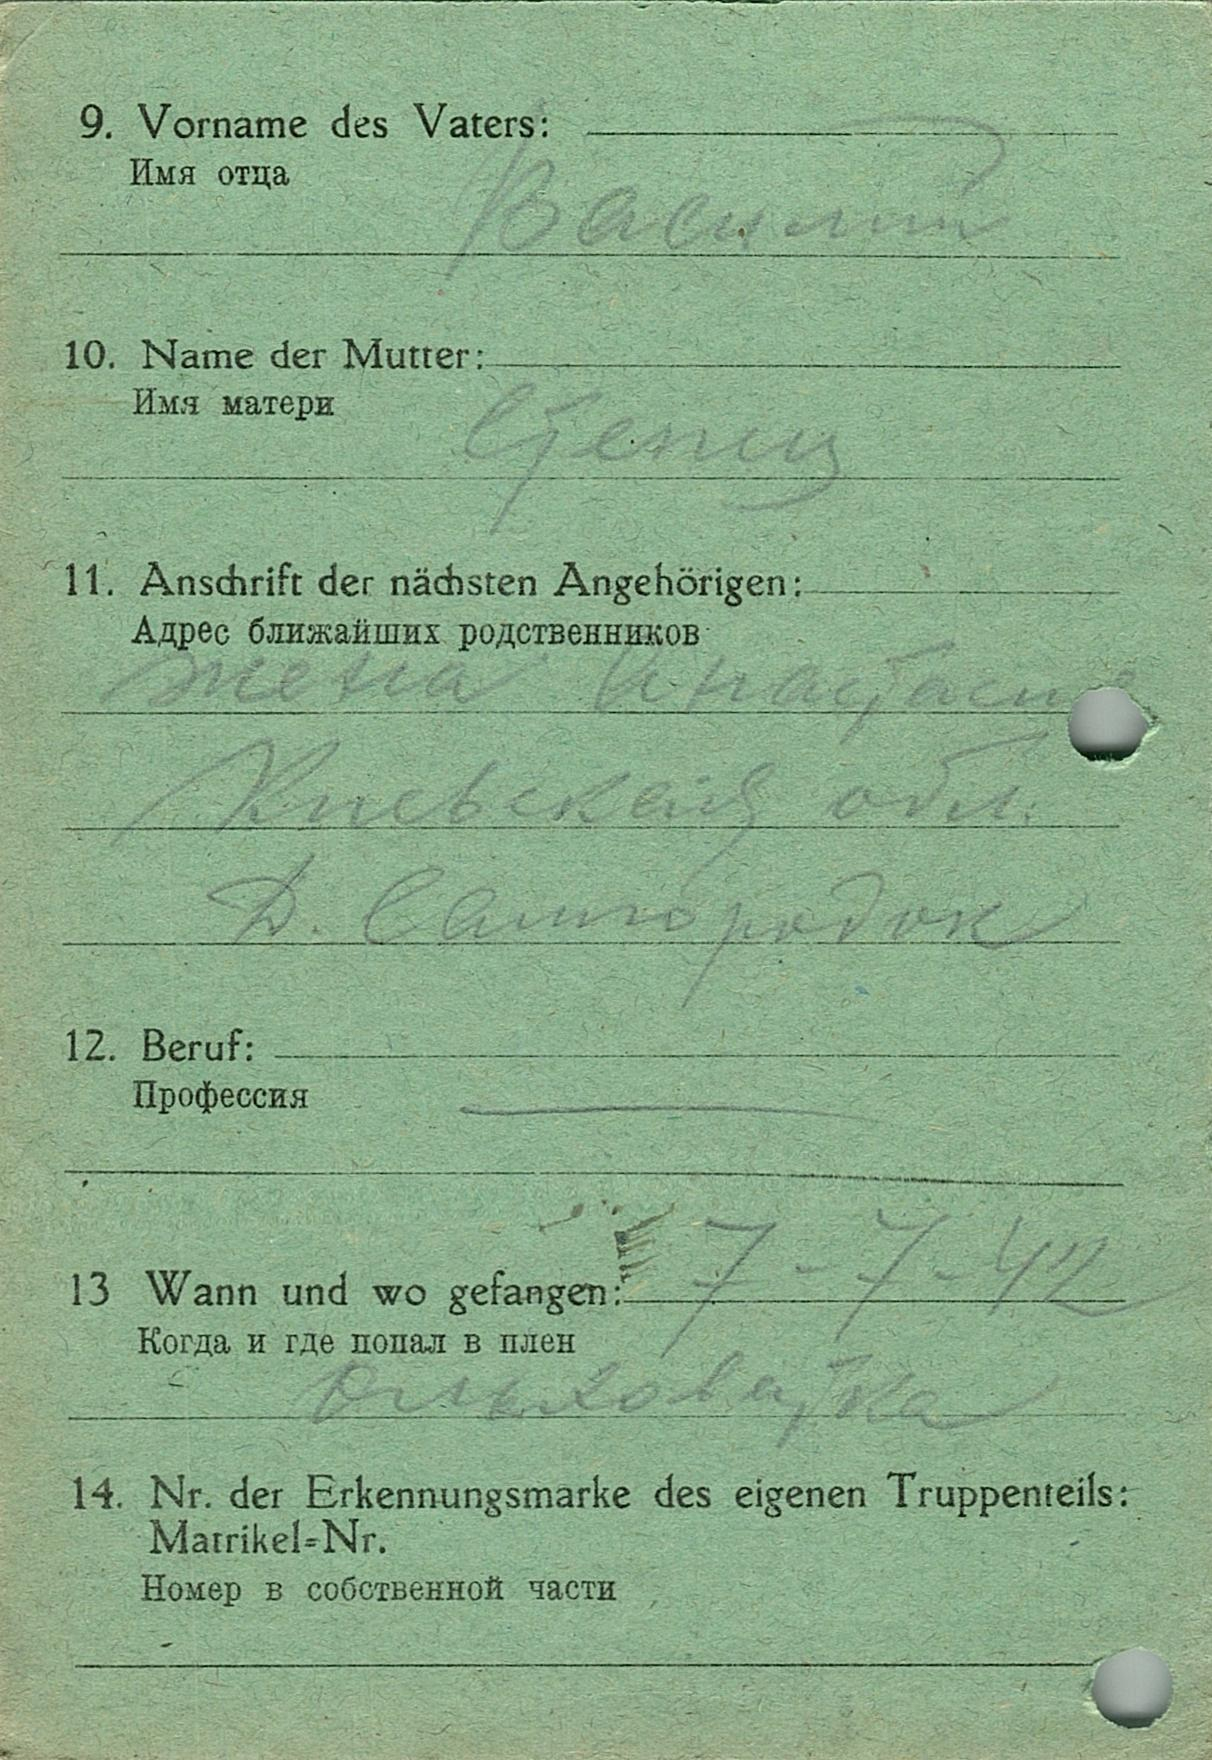 9. Vorname des Vaters:
Имя отца
Василий
10. Name der Mutter:
Имя матери
11. Anschrift der nächsten Angehörigen:
Адрес ближайших родственников
жена Анастасия
Киевская обл.
Д. Самгородок
12. Beruf:
Профессия
13 Wann und wo gefangen: 7-7-42
Когда и где попал в плен
Ольховатка
14. Nr. der Erkennungsmarke des eigenen Truppenteils:
Matrikel=Nr.
Номер в собственной части